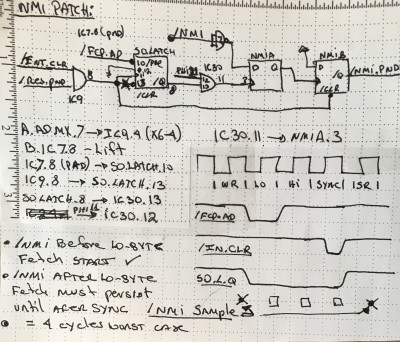 NMI PATCH:
IC7.8 (PAD)
/FCP.AD
SO.LATCH
10/PRE
12
13
/CLR
/Q
8
/ENT.CLR
/RES.PND
8
IC9
/NMI
IC30
12
13
11
NMIA
3
D
Q
NMIB
D
/Q
/CLR
/NMI.PND
A. ADMX.7 → IC9.4 (X6-4)
B. IC7.8 - Lift
IC7.8 (PAD) → SO.LATCH.10
IC9.8 → SO.LATCH.13
SO.LATCH.8 → IC30.13
→ IC30.12
IC30.11 → NMIA.3
| WR | LO | Hi | SYNC | ISR |
/FCP.AD
/IN.CLR
SO.L.Q
• /NMI Before LO-BYTE
Fetch START ✓
• /NMI AFTER LO-BYTE
Fetch must persist
until AFTER SYNC
/NMI Sample
• = 4 cycles WORST CASE